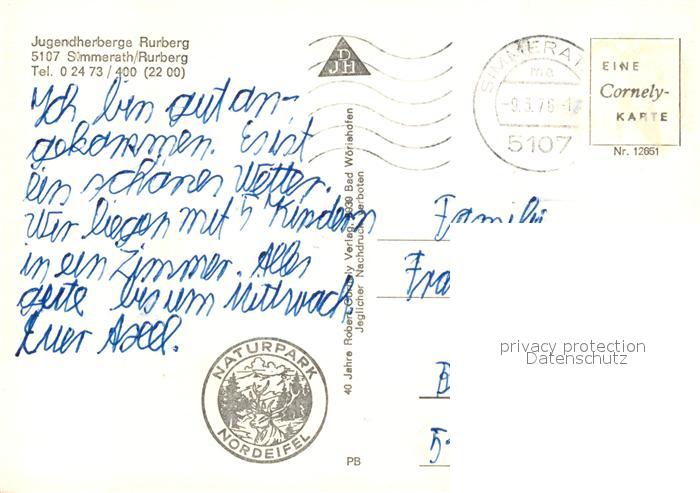 Jugendherberge Rurberg
5107 Simmerath/Rurberg
Tel. 0 24 73 / 400 (22 00)
Ich bin gut an-
gekommen. Es ist
ein schönes Wetter.
Wir liegen mit 5 Kindern
in ein Zimmer. Alles
gute bis um Mittwoch
Euer Axel.
NATURPARK
NORDEIFEL
40 Jahre Robert Cornely Verlag, 8939 Bad Wörishofen
Jeglicher Nachdruck verboten
PB
D
JH
SIMMERAT
ma
5107
EINE
Cornely-
KARTE
Nr. 12651
Familie
Fra
B
5
privacy protection
Datenschutz